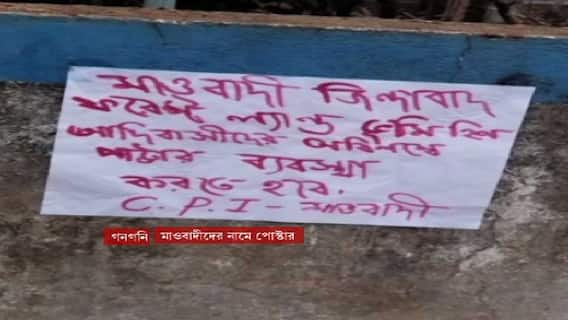 মাওবাদী জিন্দাবাদ
ফরেস্ট ল্যান্ড
আদিবাসীদের অবিলম্বে
পাট্টার ব্যবস্থা
করতে হবে.
C. P. I - মাওবাদী
গনগনি মাওবাদীদের নামে পোস্টার